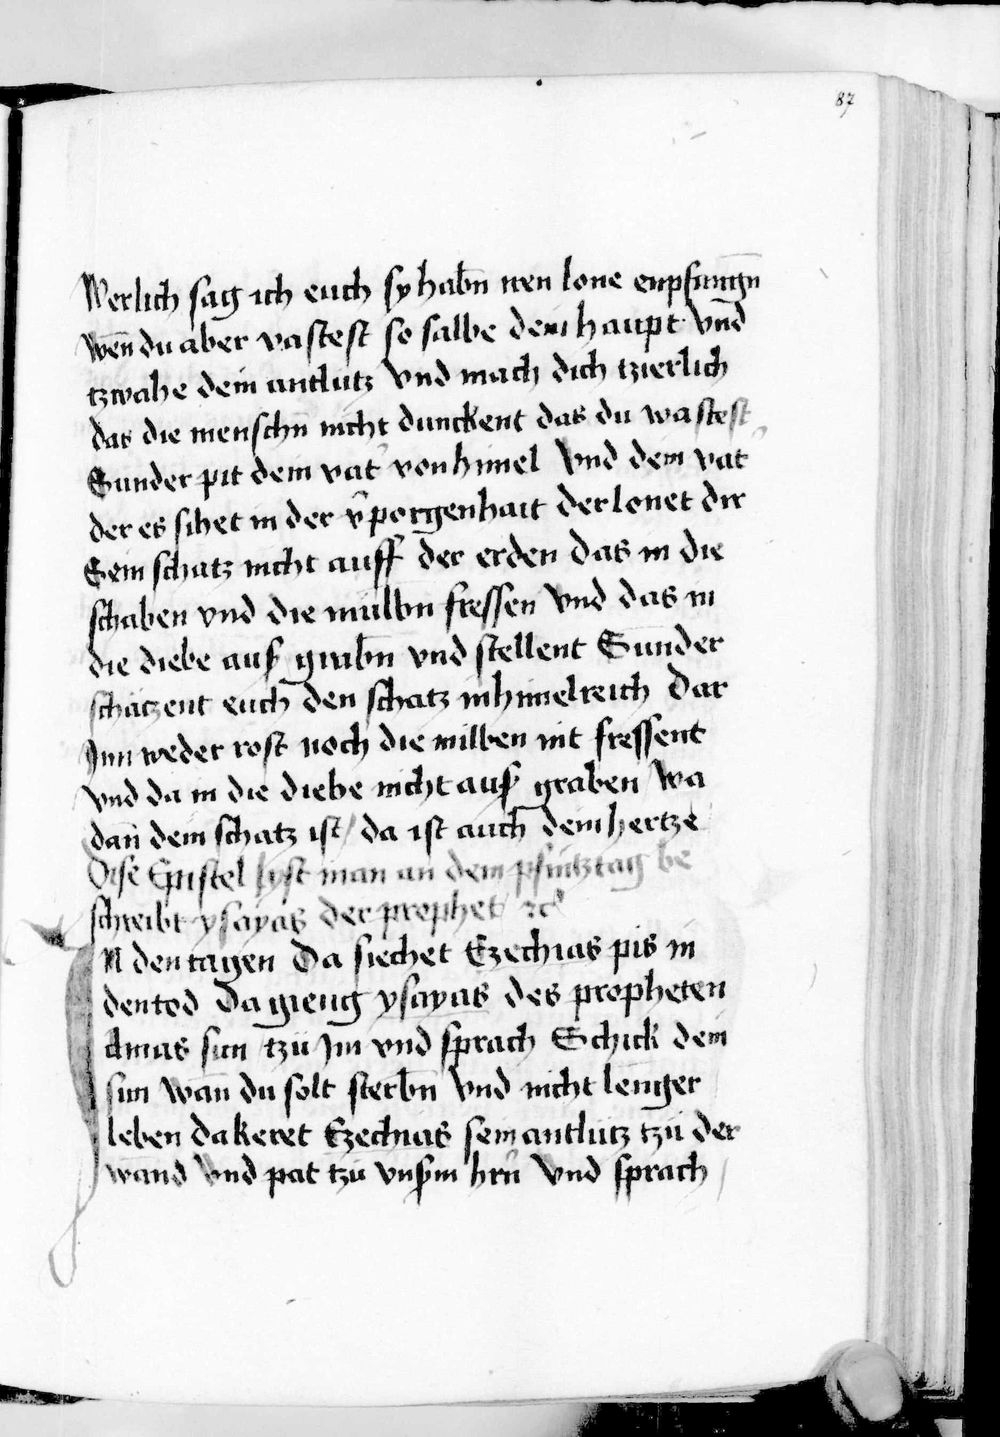 87
Werlich sag ich euch sy habn̄ iren lone enpfangn̄
wen̄ du aber vastest so salbe dein haupt vnd
tzwahe dein antlutz vnd mach dich tzierlich
das die menschn̄ nicht dunckent das du wastest
Sunder pit dein vat' von himel vnd dein vat'
der es sihet in der v'porgenhait der lonet dir
Sein schatz nicht auff der erden das in die
schaben vnd die mulbn̄ fressen vnd das in
die diebe auß grabn̄ vnd stellent Sunder
schatzent euch den schatz in himelreich Dar
Jnn weder rost noch die milben nit fressent
vnd da in die diebe nicht auß graben wa
dan̄ dein schatz ist / da ist auch dein hertze
Dise Epistel lyst man an dem pfintztag be
schreibt ysayas der prophet rc
N den tagen Da siechet Ezechias pis in
den tod Da gieng ysayas des propheten
Amas sun tzü Jm vnd sprach Schick dein
sun wan̄ du solt sterbn̄ vnd nicht lenger
leben da keret Ezechias sein antlutz tzü der
wand vnd pat tzü vnßm hrn̄ vnd sprach